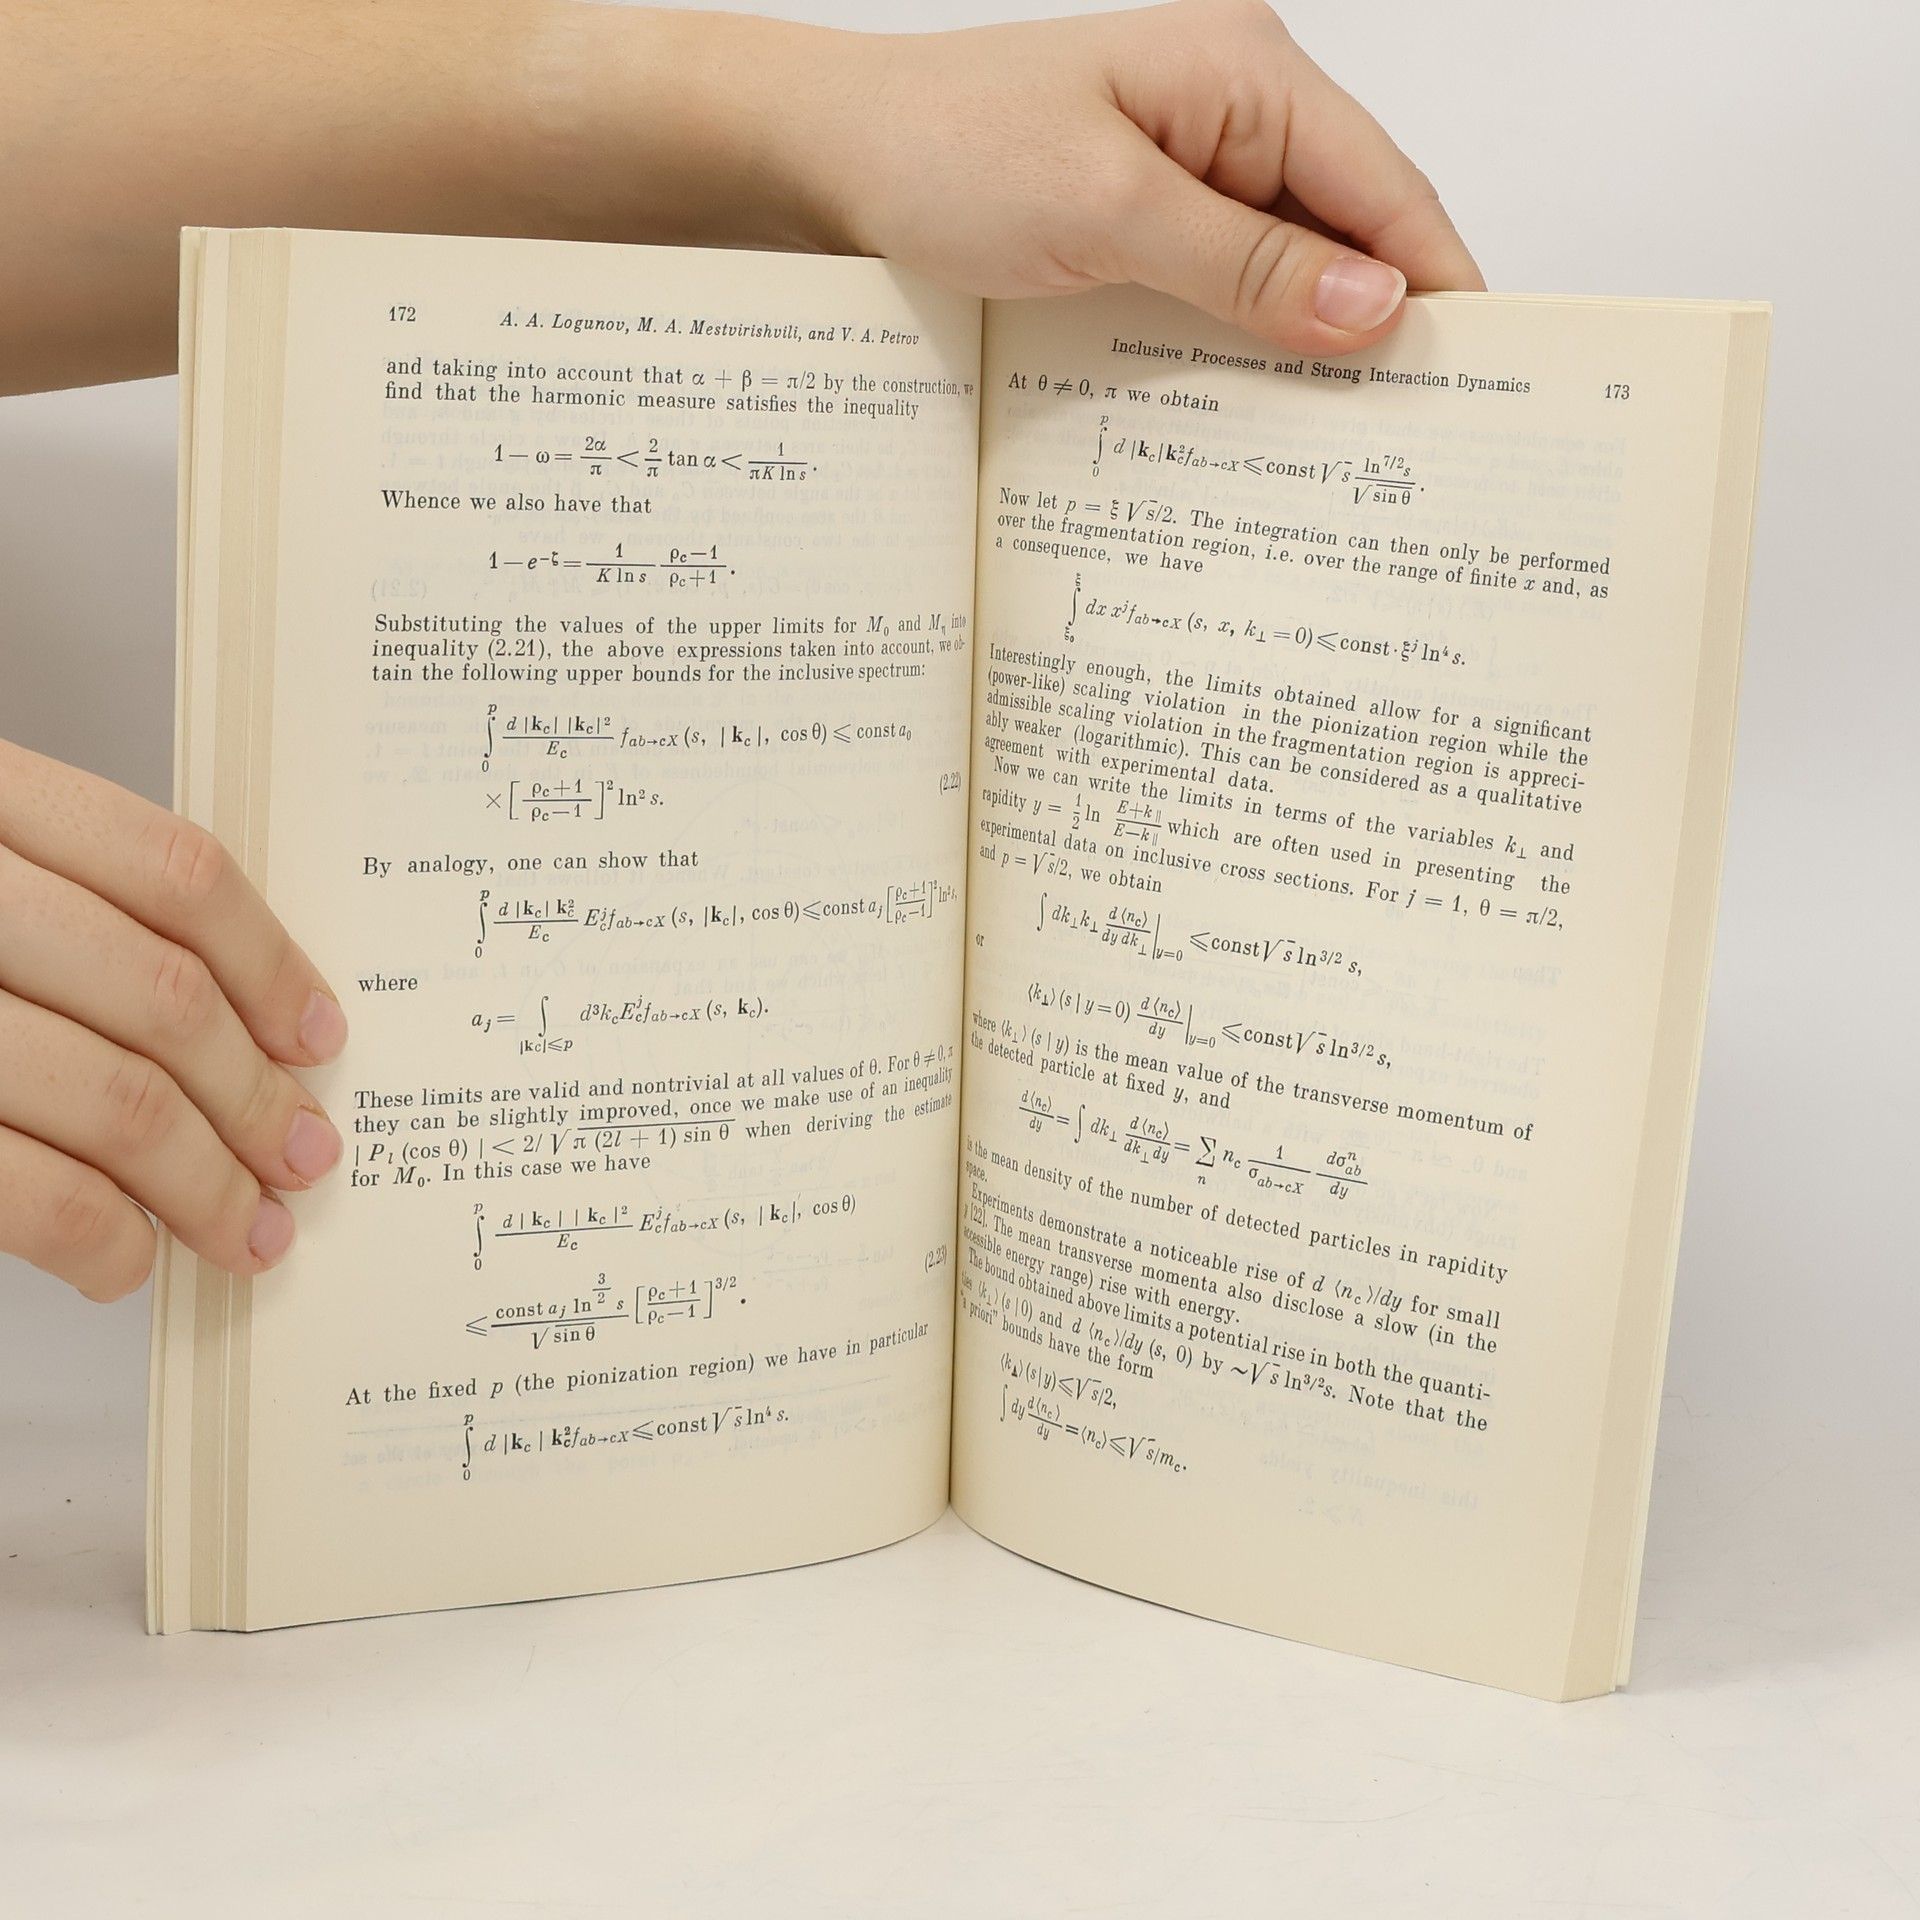 172
A. A. Logunov, M. A. Mestvirishvili, and V. A. Petrov
and taking into account that α + β = π/2 by the construction, we
find that the harmonic measure satisfies the inequality
1 — ω = 2α/π < 2/π tan α < 1/(πK ln s).
Whence we also have that
1 — e^{-ζ} = 1/(K ln s) (ρ_c — 1)/(ρ_c + 1).
Substituting the values of the upper limits for M_0 and M_η into
inequality (2.21), the above expressions taken into account, we ob-
tain the following upper bounds for the inclusive spectrum:
∫_0^p (d |k_c| |k_c|^2)/E_c f_{ab→cX} (s, |k_c|, cos θ) ⩽ const a_0
× [(ρ_c + 1)/(ρ_c — 1)]^2 ln^2 s. (2.22)
By analogy, one can show that
∫_0^p (d |k_c| k_c^2)/E_c E_c^j f_{ab→cX} (s, |k_c|, cos θ) ⩽ const a_j [(ρ_c + 1)/(ρ_c — 1)]^2 ln^2 s,
where
a_j = ∫_{|k_c| ⩽ p} d^3k_c E_c^j f_{ab→cX} (s, k_c).
These limits are valid and nontrivial at all values of θ. For θ ≠ 0, π
they can be slightly improved, once we make use of an inequality
| P_l (cos θ) | < 2/√(π (2l + 1) sin θ) when deriving the estimate
for M_0. In this case we have
∫_0^p (d | k_c | | k_c |^2)/E_c E_c^j f_{ab→cX} (s, | k_c |, cos θ)
⩽ (const a_j ln^{3/2} s)/√(sin θ) [(ρ_c + 1)/(ρ_c — 1)]^{3/2}. (2.23)
At the fixed p (the pionization region) we have in particular
∫_0^p d |k_c | k_c^2 f_{ab→cX} ⩽ const √s ln^4 s.
Inclusive Processes and Strong Interaction Dynamics
173
At θ ≠ 0, π we obtain
∫_0^p d |k_c| k_c^2 f_{ab→cX} ⩽ const √s (ln^{7/2} s)/√(sin θ).
Now let p = ξ √s/2. The integration can then only be performed
over the fragmentation region, i.e. over the range of finite x and, as
a consequence, we have
∫_{ξ_0}^ξ dx x^j f_{ab→cX} (s, x, k_⊥ = 0) ⩽ const · ξ^j ln^4 s.
Interestingly enough, the limits obtained allow for a significant
(power-like) scaling violation in the pionization region while the
admissible scaling violation in the fragmentation region is appreci-
ably weaker (logarithmic). This can be considered as a qualitative
agreement with experimental data.
Now we can write the limits in terms of the variables k_⊥ and
rapidity y = 1/2 ln (E+k_∥)/(E—k_∥) which are often used in presenting the
experimental data on inclusive cross sections. For j = 1, θ = π/2,
and p = √s/2, we obtain
∫ dk_⊥ k_⊥ d⟨n_c⟩/(dy dk_⊥) |_{y=0} ⩽ const √s ln^{3/2} s,
or
⟨k_⊥⟩ (s | y = 0) d⟨n_c⟩/dy |_{y=0} ⩽ const √s ln^{3/2} s,
where ⟨k_⊥⟩ (s | y) is the mean value of the transverse momentum of
the detected particle at fixed y, and
d⟨n_c⟩/dy = ∫ dk_⊥ d⟨n_c⟩/(dk_⊥ dy) = Σ_n n_c 1/σ_{ab→cX} dσ_{ab}^n/dy
is the mean density of the number of detected particles in rapidity
space.
Experiments demonstrate a noticeable rise of d ⟨n_c⟩/dy for small
y [22]. The mean transverse momenta also disclose a slow (in the
accessible energy range) rise with energy.
The bound obtained above limits a potential rise in both the quanti-
ties ⟨k_⊥⟩ (s | 0) and d ⟨n_c⟩/dy (s, 0) by ~√s ln^{3/2} s. Note that the
"a priori" bounds have the form
⟨k_⊥⟩ (s | y) ⩽ √s/2,
∫ dy d⟨n_c⟩/dy = ⟨n_c⟩ ⩽ √s/m_c.